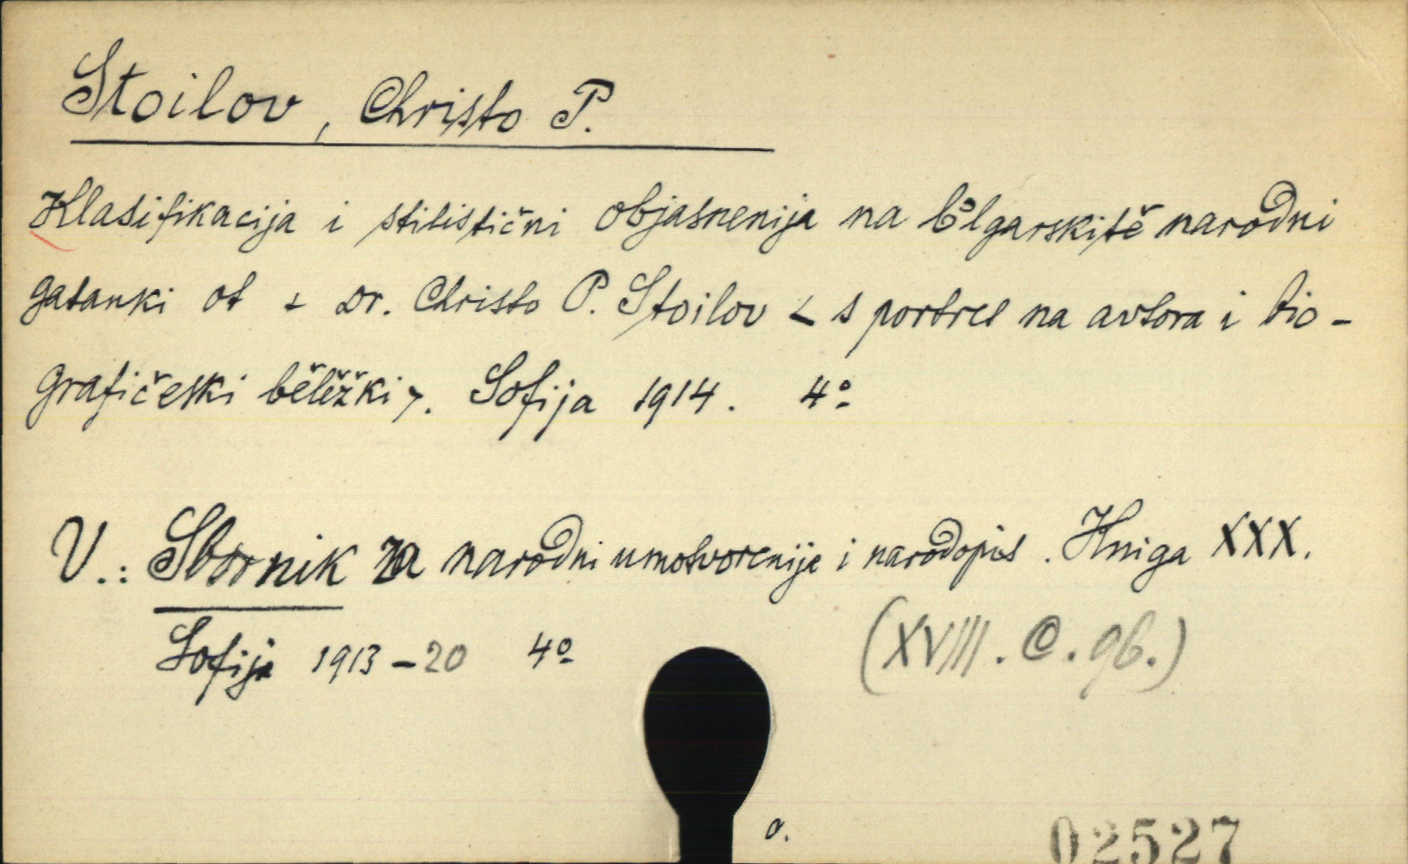 Stoilov, Christo P.
Klasifikacija i stilistični objasnenija na bʺlgarskitě narodni
gatanki ot + Dr. Christo P. Stoilov < s portret na avtora i bio-
grafičeski bělěžki >. Sofija 1914. 4º
V.: Sbornik za narodni umotvorenije i narodopis. Kniga XXX.
Sofija 1913-20 4º
(XVIII. C. 96.)
a.
02527